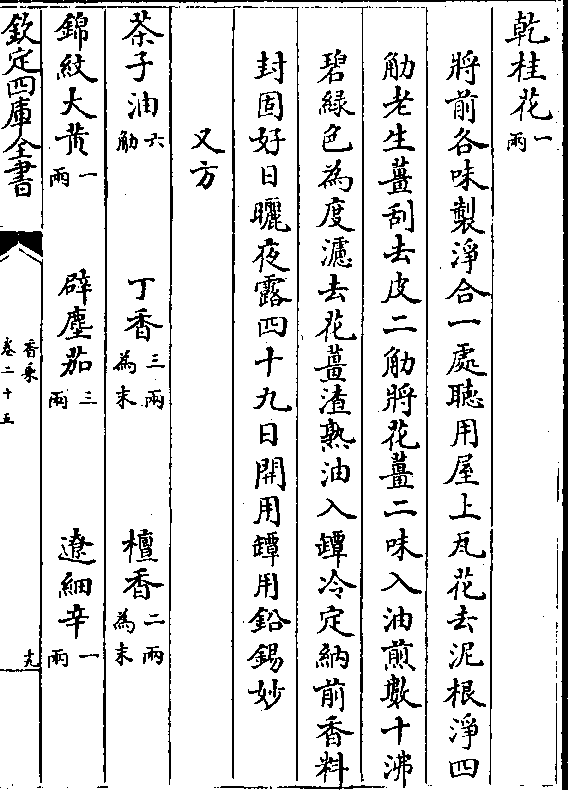 乾桂花一兩
將前各味製淨合一處聽用屋上瓦花去泥根淨四
觔老生薑刮去皮二觔將花薑二味入油煎數十沸
碧綠色為度濾去花薑渣熟油入罈冷定納前香料
封固好日曬夜露四十九日開用罈用鉛錫妙
又方
茶子油六觔 丁香三兩為末 檀香二兩為末
錦紋大黃一兩 辟塵茄三兩 遼細辛一兩
欽定四庫全書
香乘
卷二十五
十九